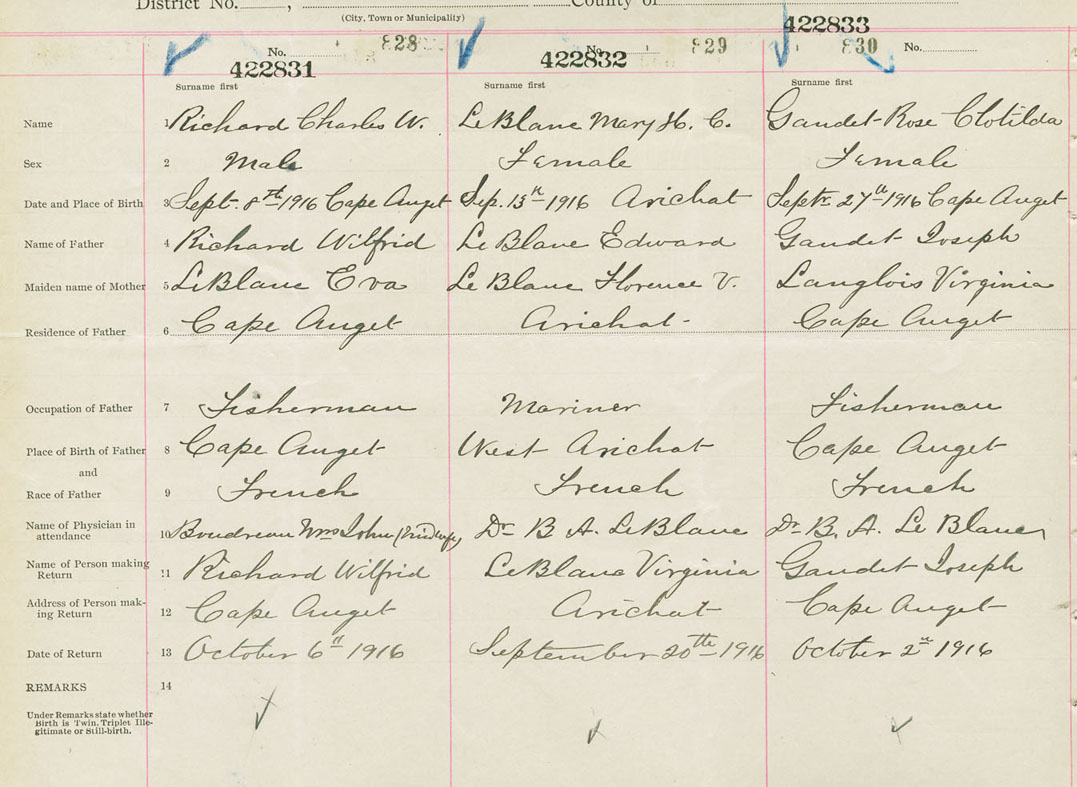 District No. , County of
(City, Town or Municipality)
No. 828 No. 829 830 No.
422831 422832 422833
Surname first Surname first Surname first
Name 1 Richard Charles W. LeBlanc Mary H. C. Gaudet Rose Clotilda
Sex 2 Male Female Female
Date and Place of Birth 3 Sept. 8th 1916 Cape Auget Sep. 13th 1916 Arichat Sept. 27th 1916 Cape Auget
Name of Father 4 Richard Wilfrid LeBlanc Edward Gaudet Joseph
Maiden name of Mother 5 LeBlanc Eva LeBlanc Florence V. Langlois Virginia
Residence of Father 6 Cape Auget Arichat Cape Auget
Occupation of Father 7 Fisherman Mariner Fisherman
Place of Birth of Father 8 Cape Auget West Arichat Cape Auget
and
Race of Father 9 French French French
Name of Physician in attendance 10 Boudreau Mrs John (Midwife) Dr B A. LeBlanc Dr B. A. Le Blanc
Name of Person making Return 11 Richard Wilfrid LeBlanc Virginia Gaudet Joseph
Address of Person mak-ing Return 12 Cape Auget Arichat Cape Auget
Date of Return 13 October 6th 1916 September 20th 1916 October 2nd 1916
REMARKS 14
Under Remarks state whether
Birth is Twin, Triplet Ille-
gitimate or Still-birth.